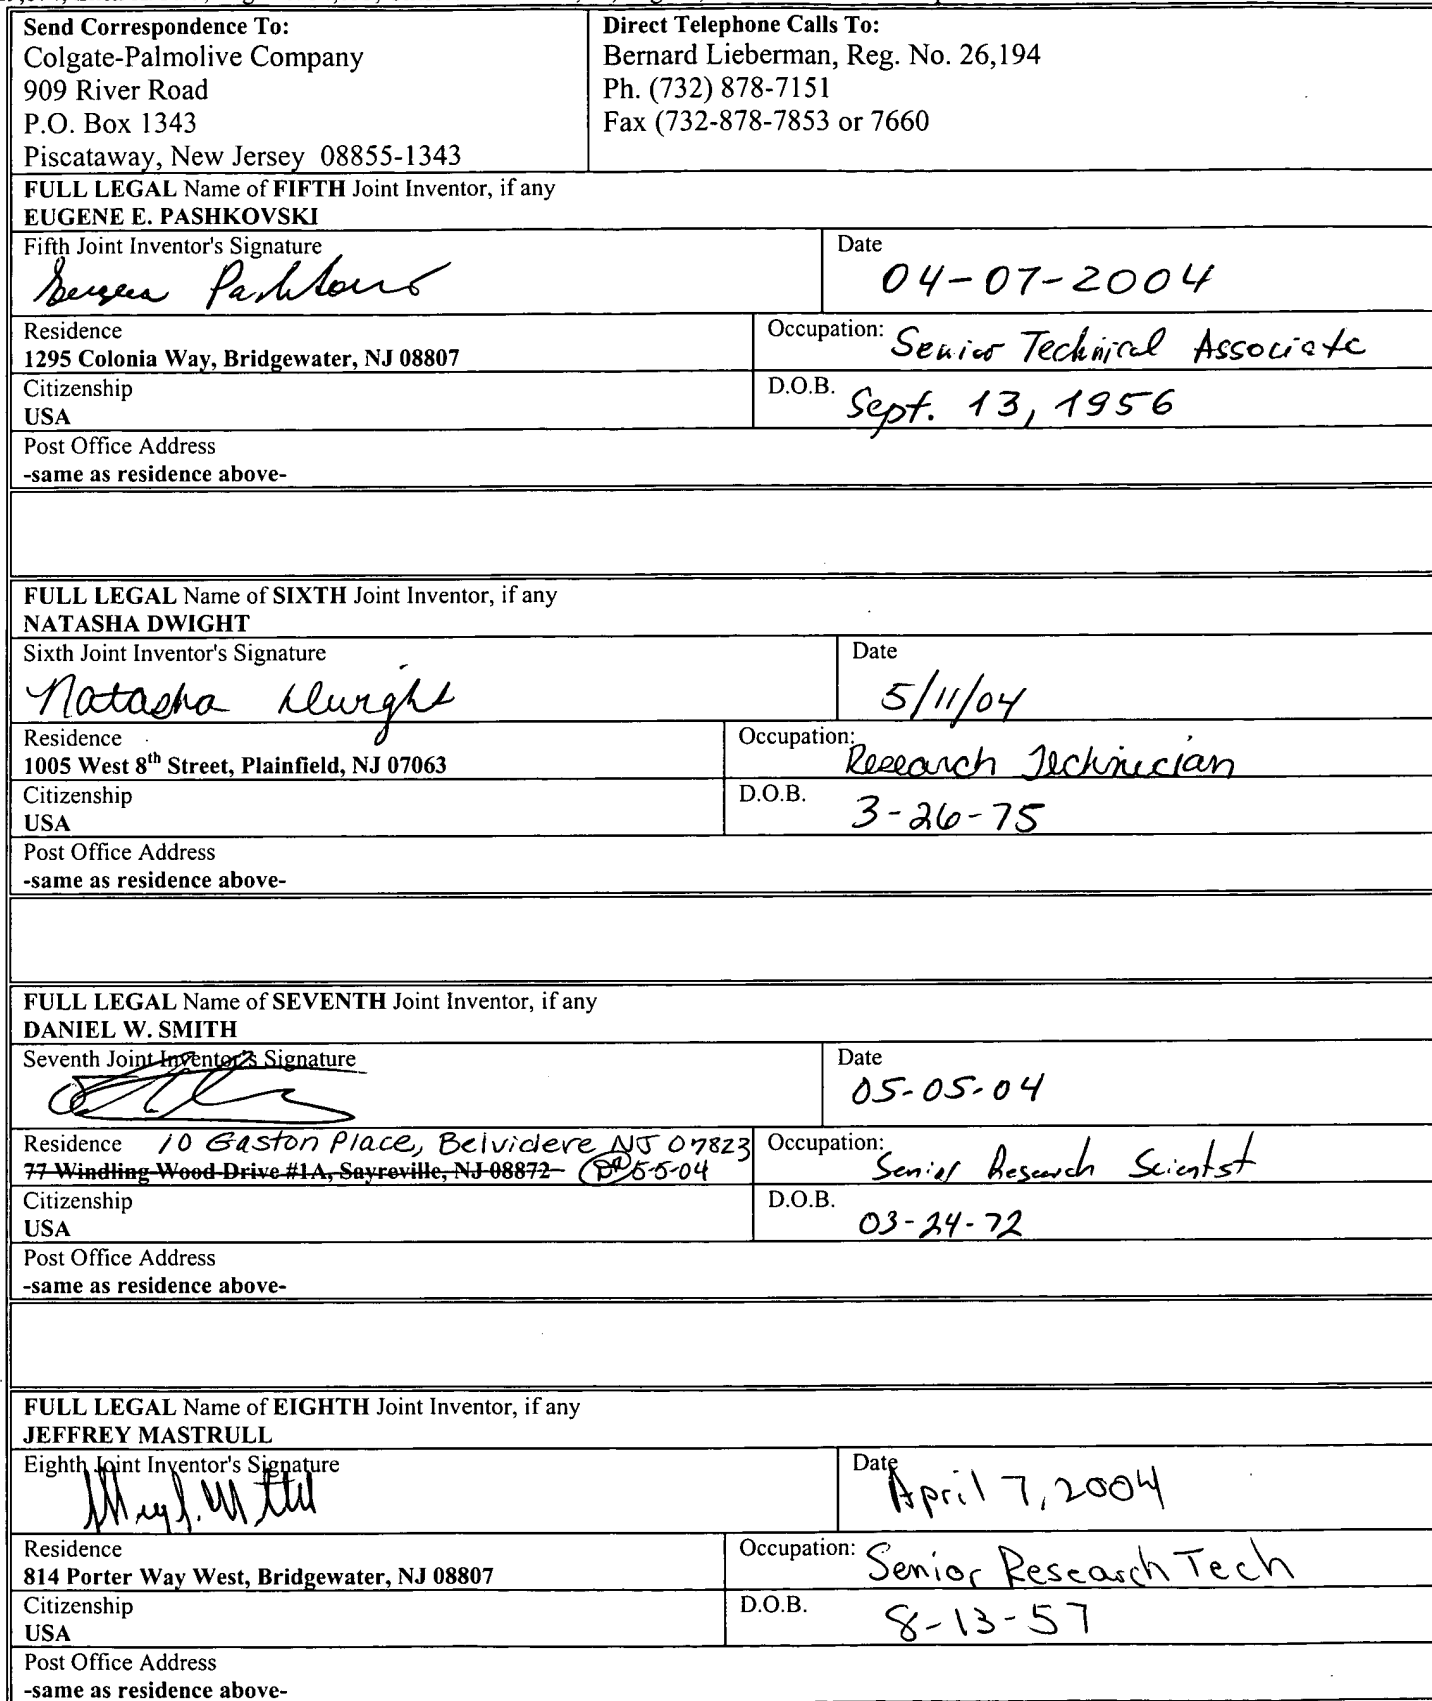 Send Correspondence To:
Colgate-Palmolive Company
909 River Road
P.O. Box 1343
Piscataway, New Jersey 08855-1343
Direct Telephone Calls To:
Bernard Lieberman, Reg. No. 26,194
Ph. (732) 878-7151
Fax (732-878-7853 or 7660
FULL LEGAL Name of FIFTH Joint Inventor, if any
EUGENE E. PASHKOVSKI
Fifth Joint Inventor's Signature
Date
04-07-2004
Residence
1295 Colonia Way, Bridgewater, NJ 08807
Occupation: Senior Technical Associate
Citizenship
USA
D.O.B. Sept. 13, 1956
Post Office Address
-same as residence above-
FULL LEGAL Name of SIXTH Joint Inventor, if any
NATASHA DWIGHT
Sixth Joint Inventor's Signature
Natasha Dwight
Date
5/11/04
Residence
1005 West 8th Street, Plainfield, NJ 07063
Occupation: Research Technician
Citizenship
USA
D.O.B. 3-26-75
Post Office Address
-same as residence above-
FULL LEGAL Name of SEVENTH Joint Inventor, if any
DANIEL W. SMITH
Seventh Joint Inventor's Signature
Date
05-05-04
Residence 10 Gaston Place, Belvidere NJ 07823
77 Windling Wood Drive #1A, Sayreville, NJ 08872 5-5-04
Occupation: Senior Research Scientst
Citizenship
USA
D.O.B. 03-24-72
Post Office Address
-same as residence above-
FULL LEGAL Name of EIGHTH Joint Inventor, if any
JEFFREY MASTRULL
Eighth Joint Inventor's Signature
Date
April 7, 2004
Residence
814 Porter Way West, Bridgewater, NJ 08807
Occupation: Senior Research Tech
Citizenship
USA
D.O.B. 8-13-57
Post Office Address
-same as residence above-